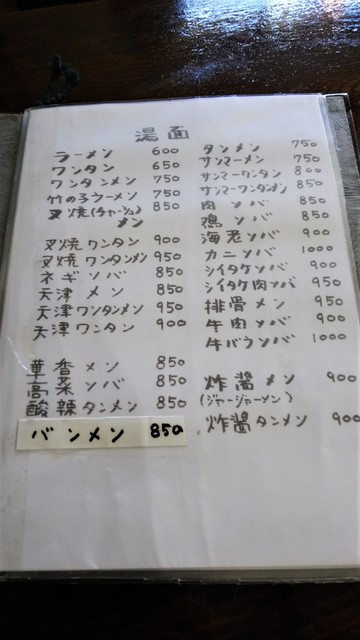 湯面
ラーメン 600
ワンタン 650
ワンタンメン 750
竹の子ラーメン 750
叉焼(チャーシュー) 850
メン
叉焼ワンタン 900
叉焼ワンタンメン 950
ネギソバ 850
天津メン 850
天津ワンタンメン 950
天津ワンタン 900
華香メン 850
高菜ソバ 850
酸辣タンメン 850
バンメン 850
タンメン 750
サンマーメン 750
サンマーワンタン 800
サンマーワンタンメン 850
肉ソバ 850
鶏ソバ 850
海老ソバ 900
カニソバ 1000
シイタケソバ 900
シイタケ肉ソバ 950
排骨メン 950
牛肉ソバ 900
牛バラソバ 1000
炸醤メン 900
(ジャージャーメン)
炸醤タンメン 900